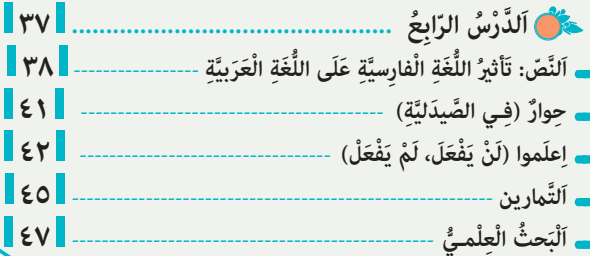 اَلدَّرْسُ الرّابِعُ ................................................ ٣٧
اَلنَّصّ: تَأثيرُ اللُّغَةِ الْفارِسيَّةِ عَلَى اللُّغَةِ الْعَرَبيَّةِ ------------------ ٣٨
حِوارٌ (فِـي الصَّيدَليَّةِ) -------------------------------------------- ٤١
اِعلَموا (لَنْ يَفْعَلَ، لَمْ يَفْعَلْ) ------------------------------------ ٤٢
اَلتَّمارين ------------------------------------------------------------ ٤٥
اَلْبَحثُ الْعِلْمـيُّ ---------------------------------------------------- ٤٧